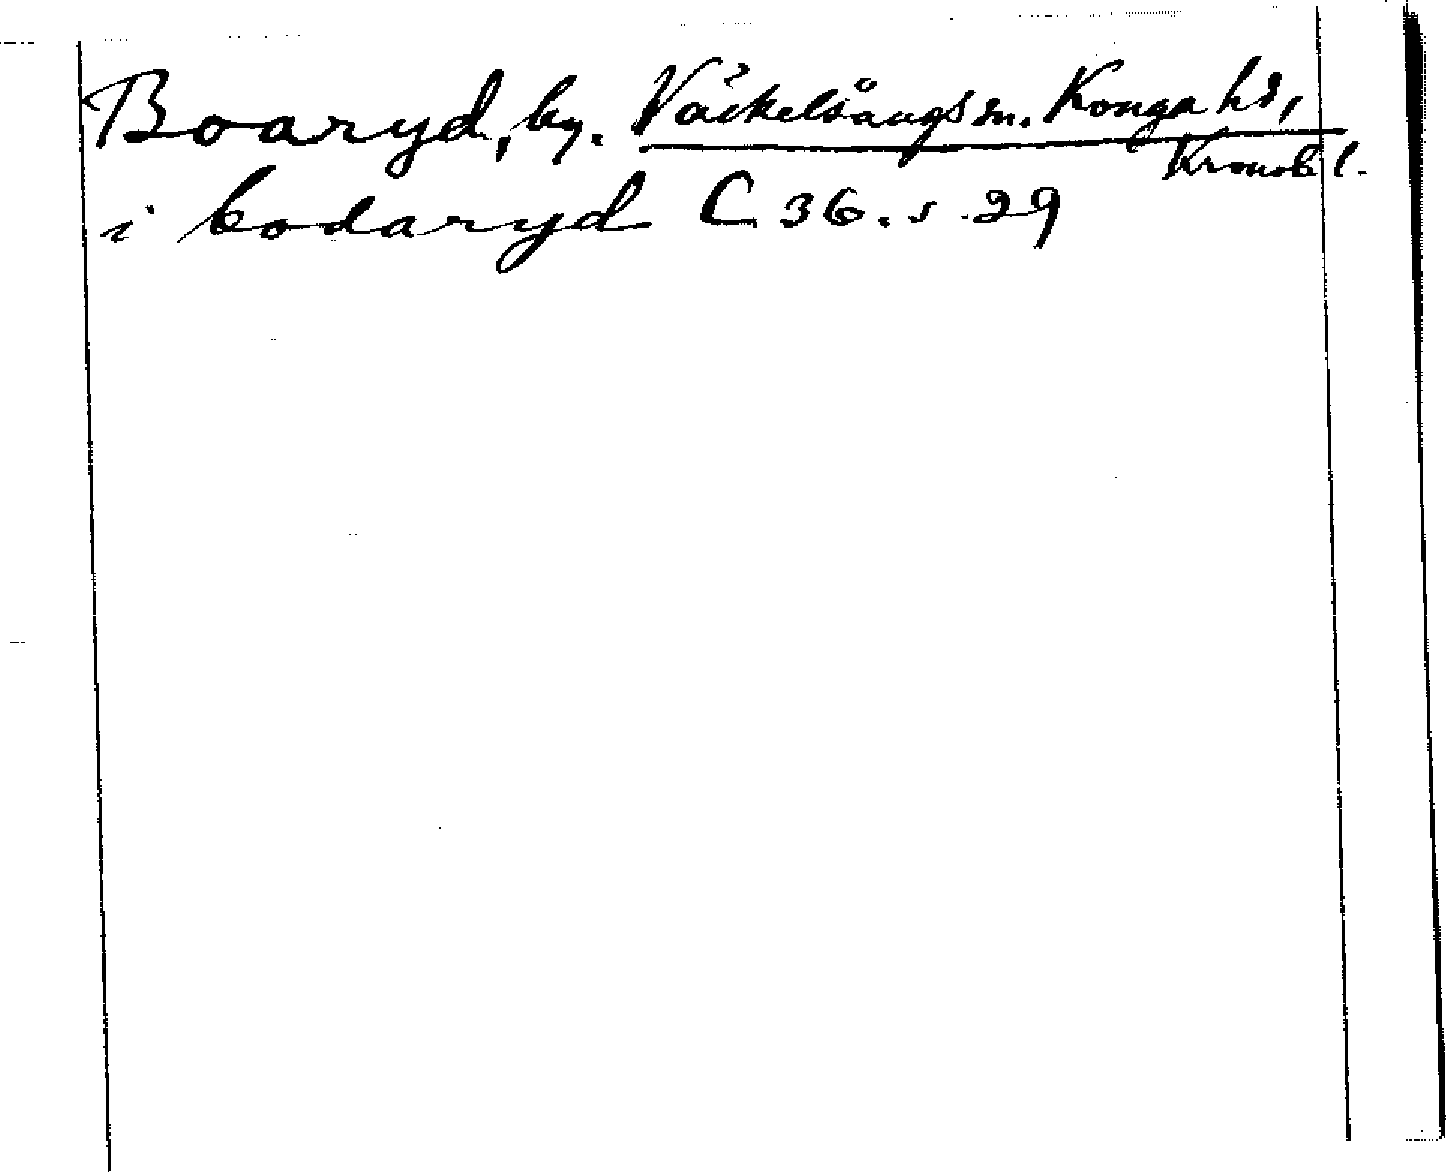 Boaryd, by. Väckelsångs sn. Konga hd,
Kronob l.
i bodaryd C 36. s. 29